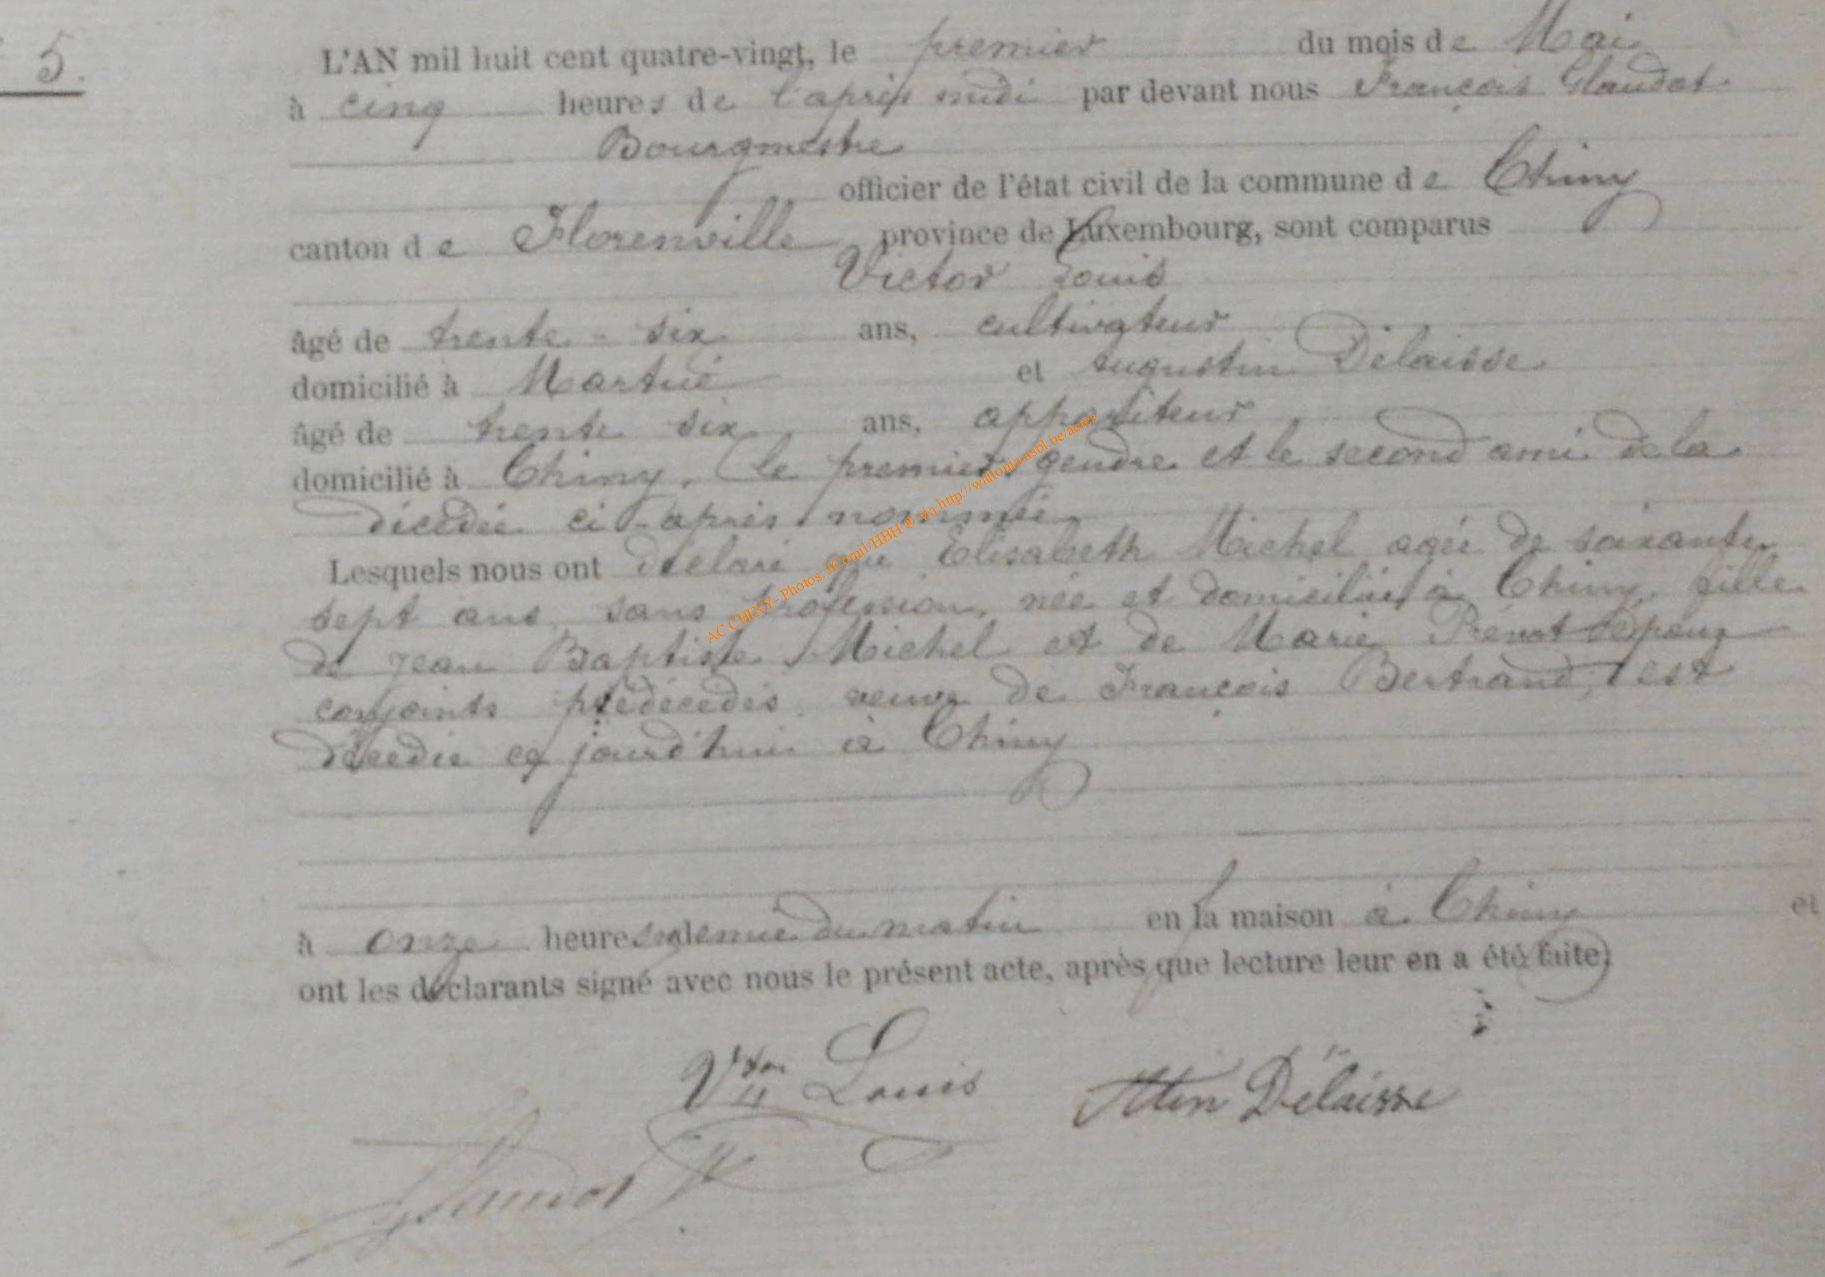 5.
L'AN mil huit cent quatre-vingt, le premier du mois de Mai
à cinq heures de l'après midi par devant nous François Glaudot
Bourgmestre
officier de l'état civil de la commune de Chiny
canton de Florenville province de Luxembourg, sont comparus
Victor Louis
âgé de trente-six ans, cultivateur
domicilié à Martué et Augustin Délaisse
âgé de trente six ans, appariteur
domicilié à Chiny, le premier gendre et le second ami de la
décédée ci-après nommée
Lesquels nous ont déclaré que Elisabeth Michel agée de soixante
sept ans, sans profession, née et domiciliée à Chiny, fille
de Jean Baptiste Michel et de Marie Prévot
conjoints prédécédés, veuve de François Bertrand, est
décédée ce jourd'hui à Chiny
à onze heures du matin en la maison à Chiny et
ont les déclarants signé avec nous le présent acte, après que lecture leur en a été faite
Vtor Louis Attin Délaisse
Glaudot F
AC CHINY - Photos JComil/HBH © via http://wallonia-asbl.be/actes